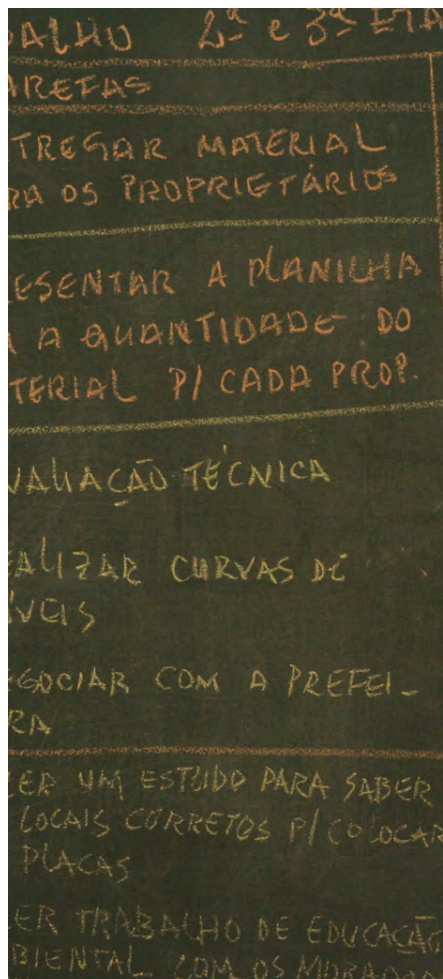 ALHO 2ª e 3ª ETA
AREFAS
TREGAR MATERIAL
RA OS PROPRIETÁRIOS
ESENTAR A PLANILHA
A QUANTIDADE DO
TERIAL P/ CADA PROP.
VALIAÇÃO TÉCNICA
EALIZAR CURVAS DE
ÍVEIS
EGOCIAR COM A PREFEI-
RA
ER UM ESTUDO PARA SABER
LOCAIS CORRETOS P/ COLOCAR
PLACAS
ER TRABALHO DE EDUCAÇÃO
BIENTAL COM OS MORADO